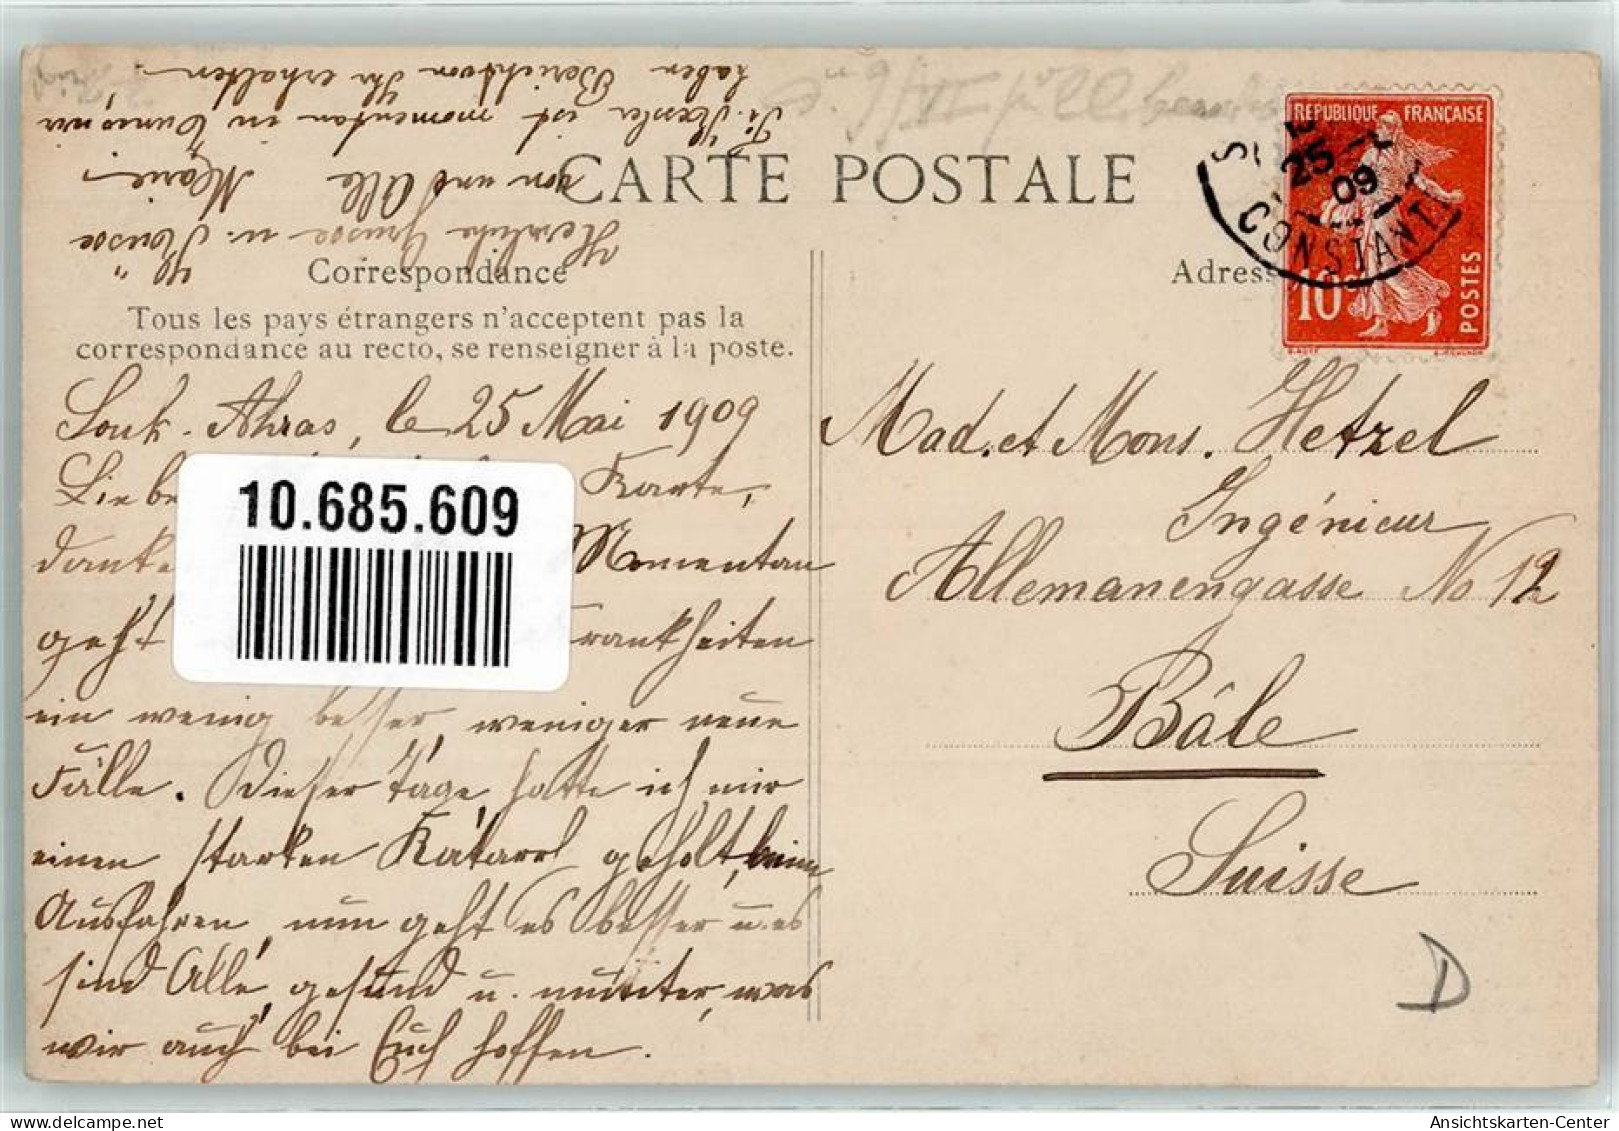 haben Bericht von Ihr erhalten.
Fr. Hesler ist momentan in Tunis wir
von uns Alle Marie.
Herzliche Grüsse u. Küsse
CARTE POSTALE
REPUBLIQUE FRANÇAISE
10c
POSTES
25
09
CONSTANT
Correspondance
Adress
Tous les pays étrangers n'acceptent pas la
correspondance au recto, se renseigner à la poste.
Souk-Ahras, le 25 Mai 1909
Liebe Karte,
danke Momentan
geht Krankheiten
ein wenig besser, weniger neue
Fälle. Dieser Tage hatte ich mir
einen starken Katarrh geholt, beim
Ausfahren, nun geht es besser u. es
sind Alle gesund u. munter, was
wir auch bei Euch hoffen.
10.685.609
Mad. et Mons. Hetzel
Ingénieur
Allemanengasse No 12
Bâle
Suisse
D
Ansichtskarten-Center